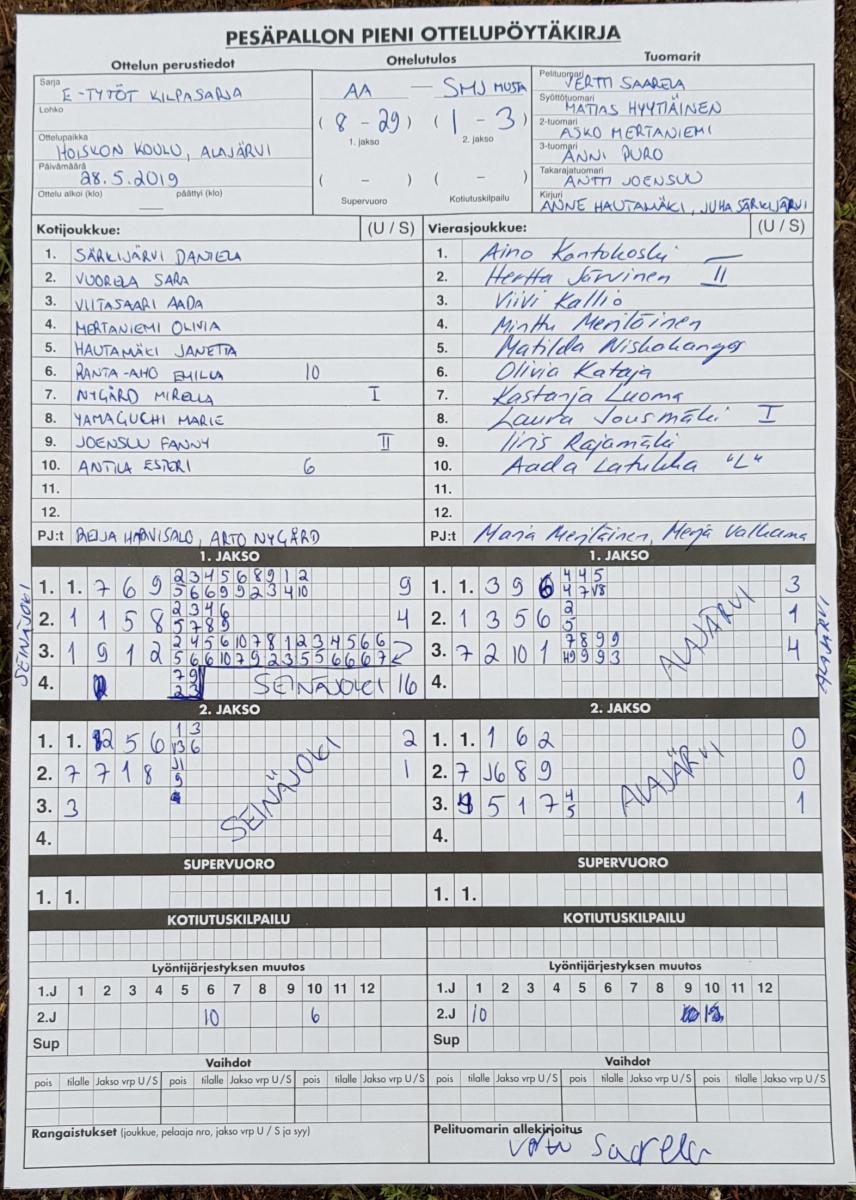 PESÄPALLON PIENI OTTELUPÖYTÄKIRJA
Ottelun perustiedot
Sarja
E-TYTÖT KILPASARJA
Lohko
Ottelupaikka
HOISKON KOULU, ALAJÄRVI
Päivämäärä
28.5.2019
Ottelu alkoi (klo) päättyi (klo)
Ottelutulos
AA — SMJ MUSTA
(8 - 29) (1 - 3)
1. jakso 2. jakso
( - ) ( - )
Supervuoro Kotiutuskilpailu
Tuomarit
Pelituomari
VERTTI SAARELA
Syöttötuomari
MATIAS HYYTIÄINEN
2-tuomari
ASKO MERTANIEMI
3-tuomari
ANNI PURO
Takarajatuomari
ANTTI JOENSUU
Kirjuri
ANNE HAUTAMÄKI, JUHA SÄRKIJÄRVI
Kotijoukkue: (U / S)
1. SÄRKIJÄRVI DANIELA
2. VUORELA SARA
3. VIITASAARI AADA
4. MERTANIEMI OLIVIA
5. HAUTAMÄKI JANETTA
6. RANTA-AHO EMILIA 10
7. NYGÅRD MIRELLA I
8. YAMAGUCHI MARIE
9. JOENSUU FANNY II
10. ANTILA ESTERI 6
11.
12.
PJ:t REIJA HARVISALO, ARTO NYGÅRD
Vierasjoukkue: (U / S)
1. Aino Kontokoski
2. Hertta Järvinen II
3. Viivi Kallio
4. Minttu Meriläinen
5. Matilda Niskakangas
6. Olivia Kataja
7. Kastanja Luoma
8. Laura Jousmäki I
9. Iiris Rajamäki
10. Aada Latukka "L"
11.
12.
PJ:t Maria Meriläinen, Merja
SEINÄJOKI
1. JAKSO
1. 1. 7 6 9 2 3 4 5 6 8 9 1 2 9
5 6 6 9 9 2 3 4 10
2. 1 1 5 8 2 3 4 6 4
5 7 8 9
3. 1 9 1 2 2 4 5 6 10 7 8 1 2 3 4 5 6 6
5 6 6 10 7 9 2 3 5 5 6 6 6 7
4. 7 9 SEINÄJOKI 16
2 3
2. JAKSO
1. 1. 2 5 6 1 3 2
13 6
2. 7 7 1 8 1
9
3. 3
4.
SEINÄJOKI
SUPERVUORO
1. 1.
KOTIUTUSKILPAILU
Lyöntijärjestyksen muutos
1.J 1 2 3 4 5 6 7 8 9 10 11 12
2.J 10 6
Sup
Vaihdot
pois tilalle Jakso vrp U / S pois tilalle Jakso vrp U / S pois tilalle Jakso vrp U / S
Rangaistukset (joukkue, pelaaja nro, jakso vrp U / S ja syy)
1. JAKSO
1. 1. 3 9 6 4 4 5 3
4 7 V8
2. 1 3 5 6 2 1
5
3. 7 2 10 1 7 8 9 9 4
9 9 3
4.
ALAJÄRVI
ALAJÄRVI
2. JAKSO
1. 1. 1 6 2 0
2. 7 J6 8 9 0
3. 5 1 7 4 1
5
4.
ALAJÄRVI
SUPERVUORO
1. 1.
KOTIUTUSKILPAILU
Lyöntijärjestyksen muutos
1.J 1 2 3 4 5 6 7 8 9 10 11 12
2.J 10
Sup
Vaihdot
pois tilalle Jakso vrp U / S pois tilalle Jakso vrp U / S pois tilalle Jakso vrp U / S
Pelituomarin allekirjoitus
Saarela